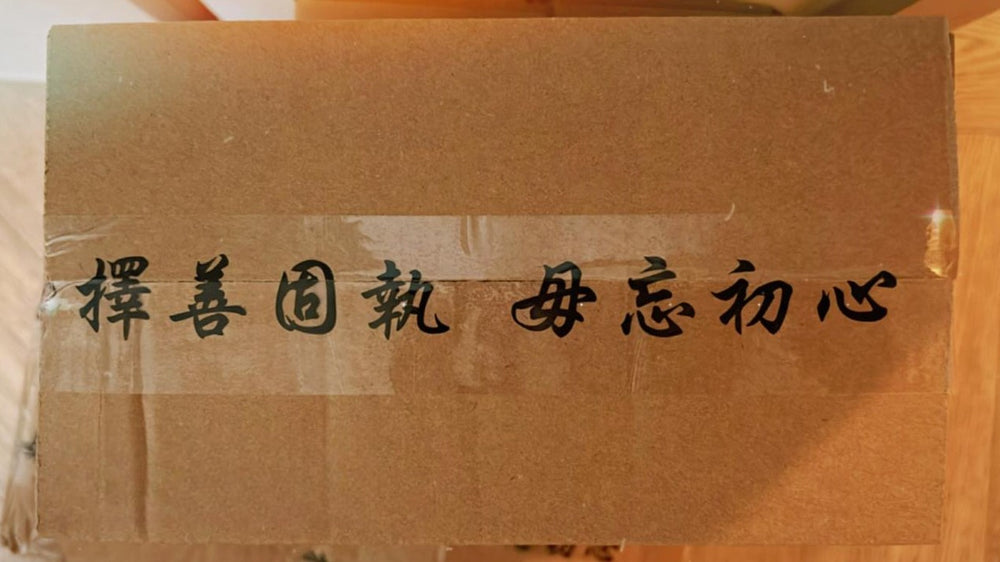 擇善固執 毋忘初心